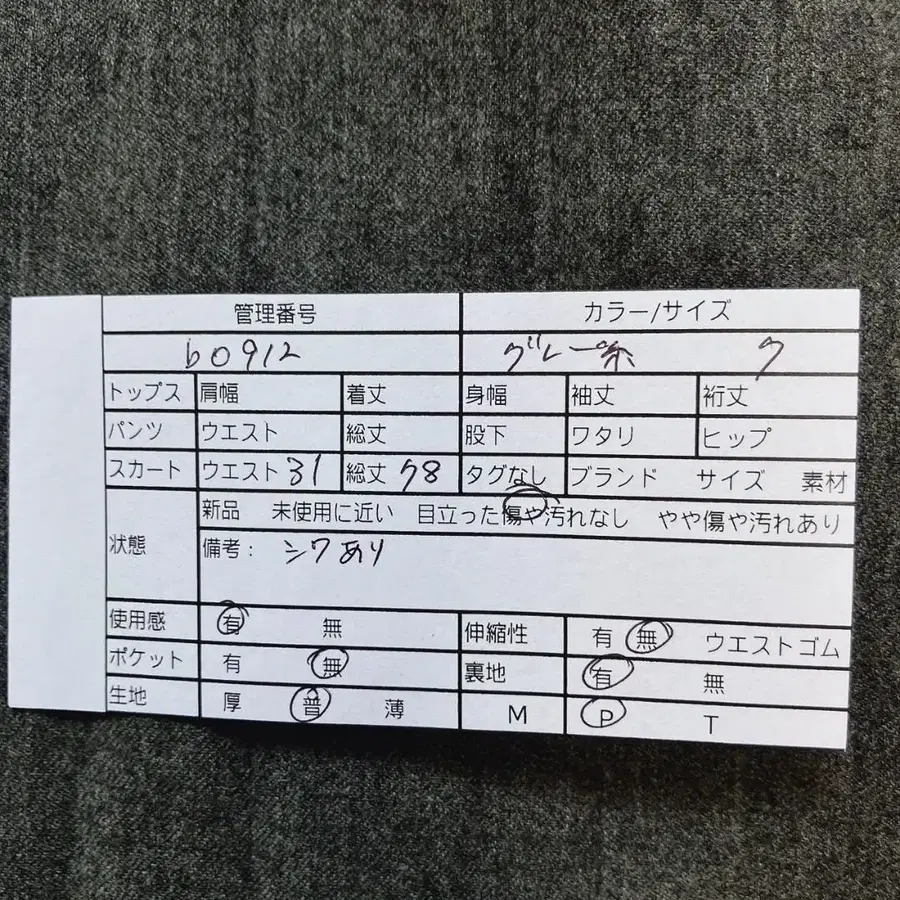 管理番号 カラー/サイズ
b0912 グレー系 7
トップス 肩幅 着丈 身幅 袖丈 裄丈
パンツ ウエスト 総丈 股下 ワタリ ヒップ
スカート ウエスト 31 総丈 78 タグなし ブランド サイズ 素材
状態 新品 未使用に近い 目立った傷や汚れなし やや傷や汚れあり
備考: シワあり
使用感 有 無 伸縮性 有 無 ウエストゴム
ポケット 有 無 裏地 有 無
生地 厚 普 薄 M P T